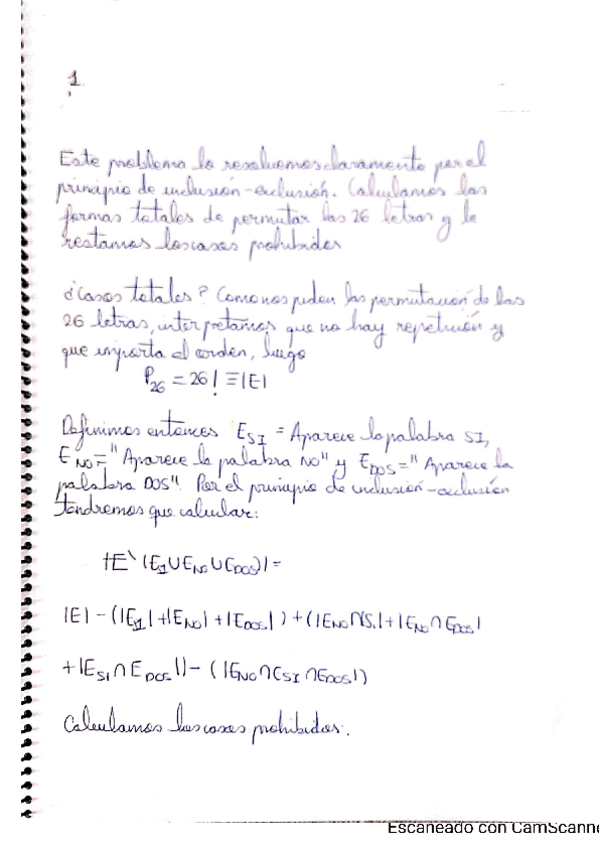 1.
Este problema lo resolvemos claramente por el
principio de inclusión-exclusión. Calculamos las
formas totales de permutar las 26 letras y le
restamos los casos prohibidos
¿Casos totales? Como nos piden las permutación de las
26 letras, interpretamos que no hay repetición y
que importa el orden, luego
P₂₆ = 26! ≡ |E|
Definimos entonces E_SI = Aparece la palabra SI,
E_NO = "Aparece la palabra NO" y E_DOS = "Aparece la
palabra DOS". Por el principio de inclusión-exclusión
tendremos que calcular:
|E\(E_SI ∪ E_NO ∪ E_DOS)| =
|E| - (|E_SI| + |E_NO| + |E_DOS|) + (|E_NO ∩ SI| + |E_NO ∩ E_DOS|
+ |E_SI ∩ E_DOS|) - (|E_NO ∩ E_SI ∩ E_DOS|)
Calculamos los casos prohibidos:
Escaneado con CamScanne